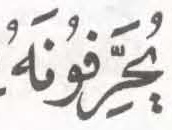 يُحَرِّفُونَهُ